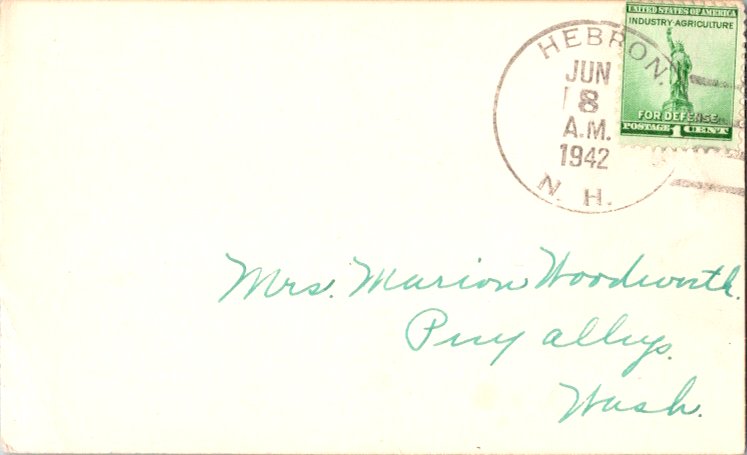 UNITED STATES OF AMERICA
INDUSTRY·AGRICULTURE
FOR DEFENSE
POSTAGE 1 CENT
HEBRON.
JUN
8
A.M.
1942
N. H.
Mrs. Marion Woodworth.
Puyallup.
Wash.